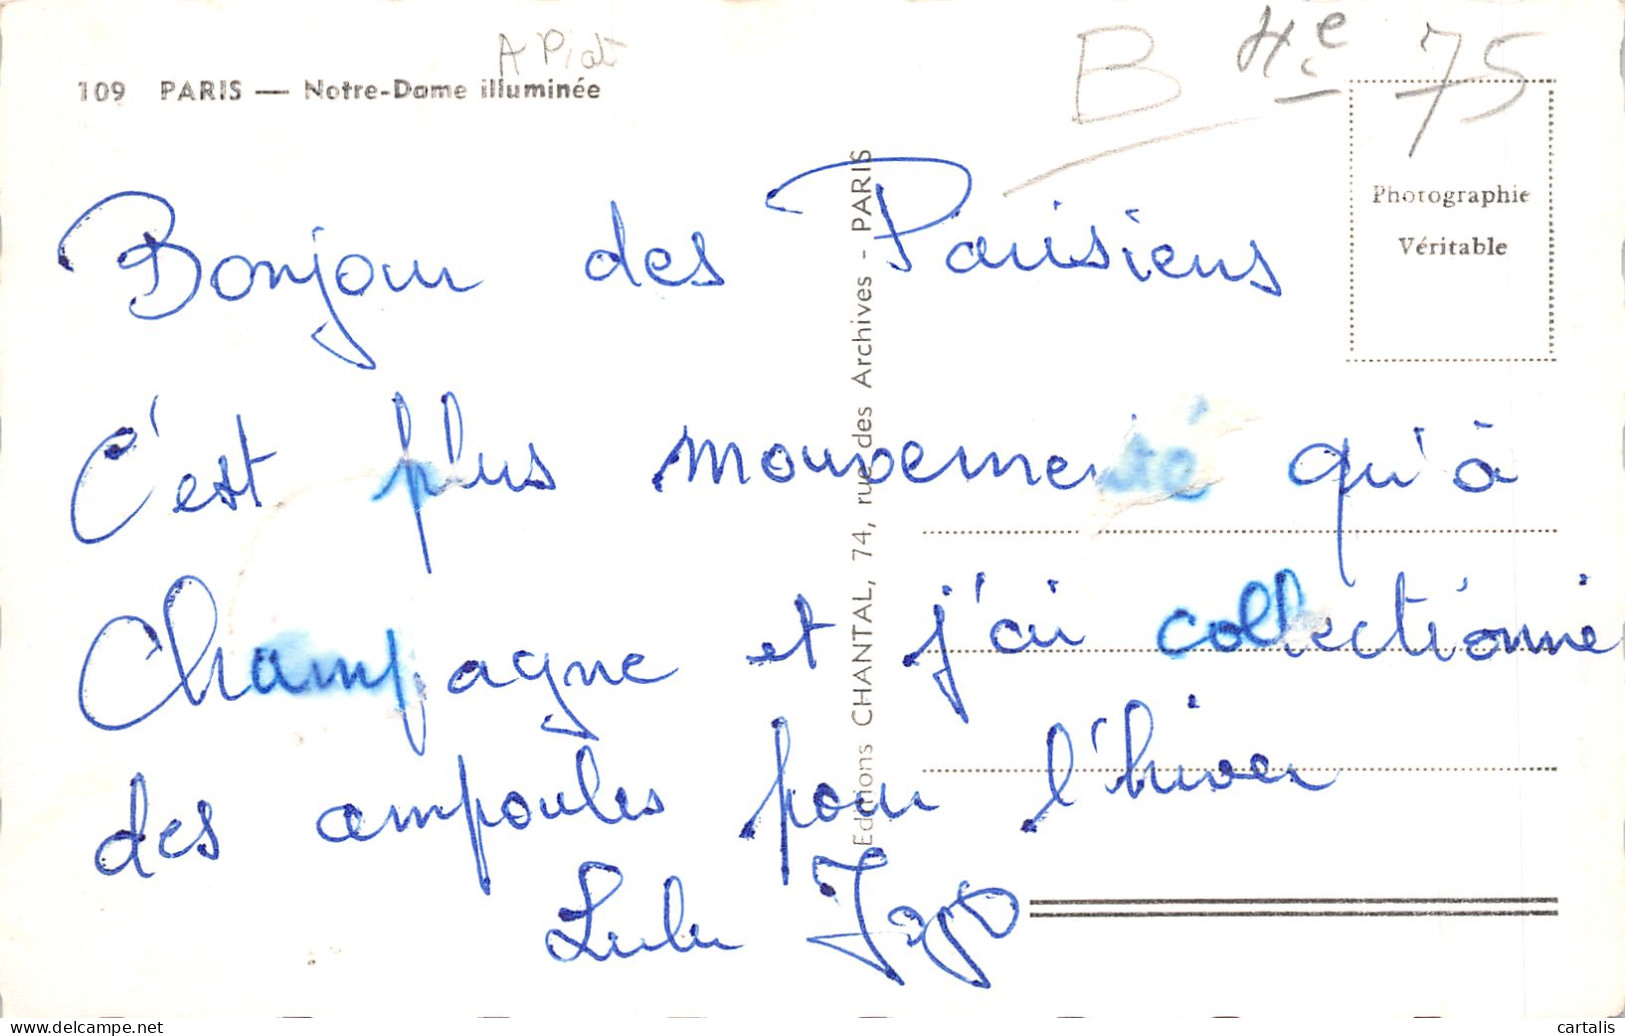 A Piat
B He 75
109 PARIS — Notre-Dame illuminée
Photographie
Véritable
Editions CHANTAL, 74, rue des Archives - PARIS
Bonjour des Parisiens
C'est plus mouvementé qu'à
Champagne et j'ai collectionné
des ampoules pour l'hiver
Lulu
cartalis
delcampe.net